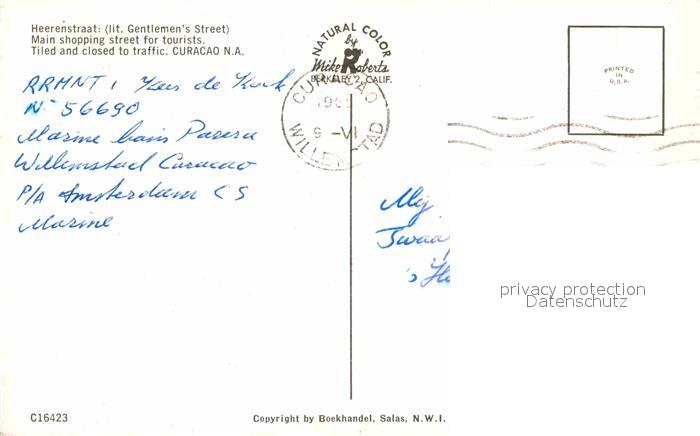 Heerenstraat: (lit. Gentlemen's Street)
Main shopping street for tourists.
Tiled and closed to traffic. CURACAO N.A.
NATURAL COLOR
by
Mike Roberts
BERKELEY 2, CALIF.
CURACAO
196
9 -VI
WILLEMSTAD
PRINTED
IN
U.S.A.
RRMNT 1 Kees de Kock
No 56690
Marine basis Parera
Willemstad Curacao
P/A Amsterdam CS
Marine
Mej.
Zwaa
's
privacy protection
Datenschutz
C16423
Copyright by Boekhandel, Salas, N.W.I.